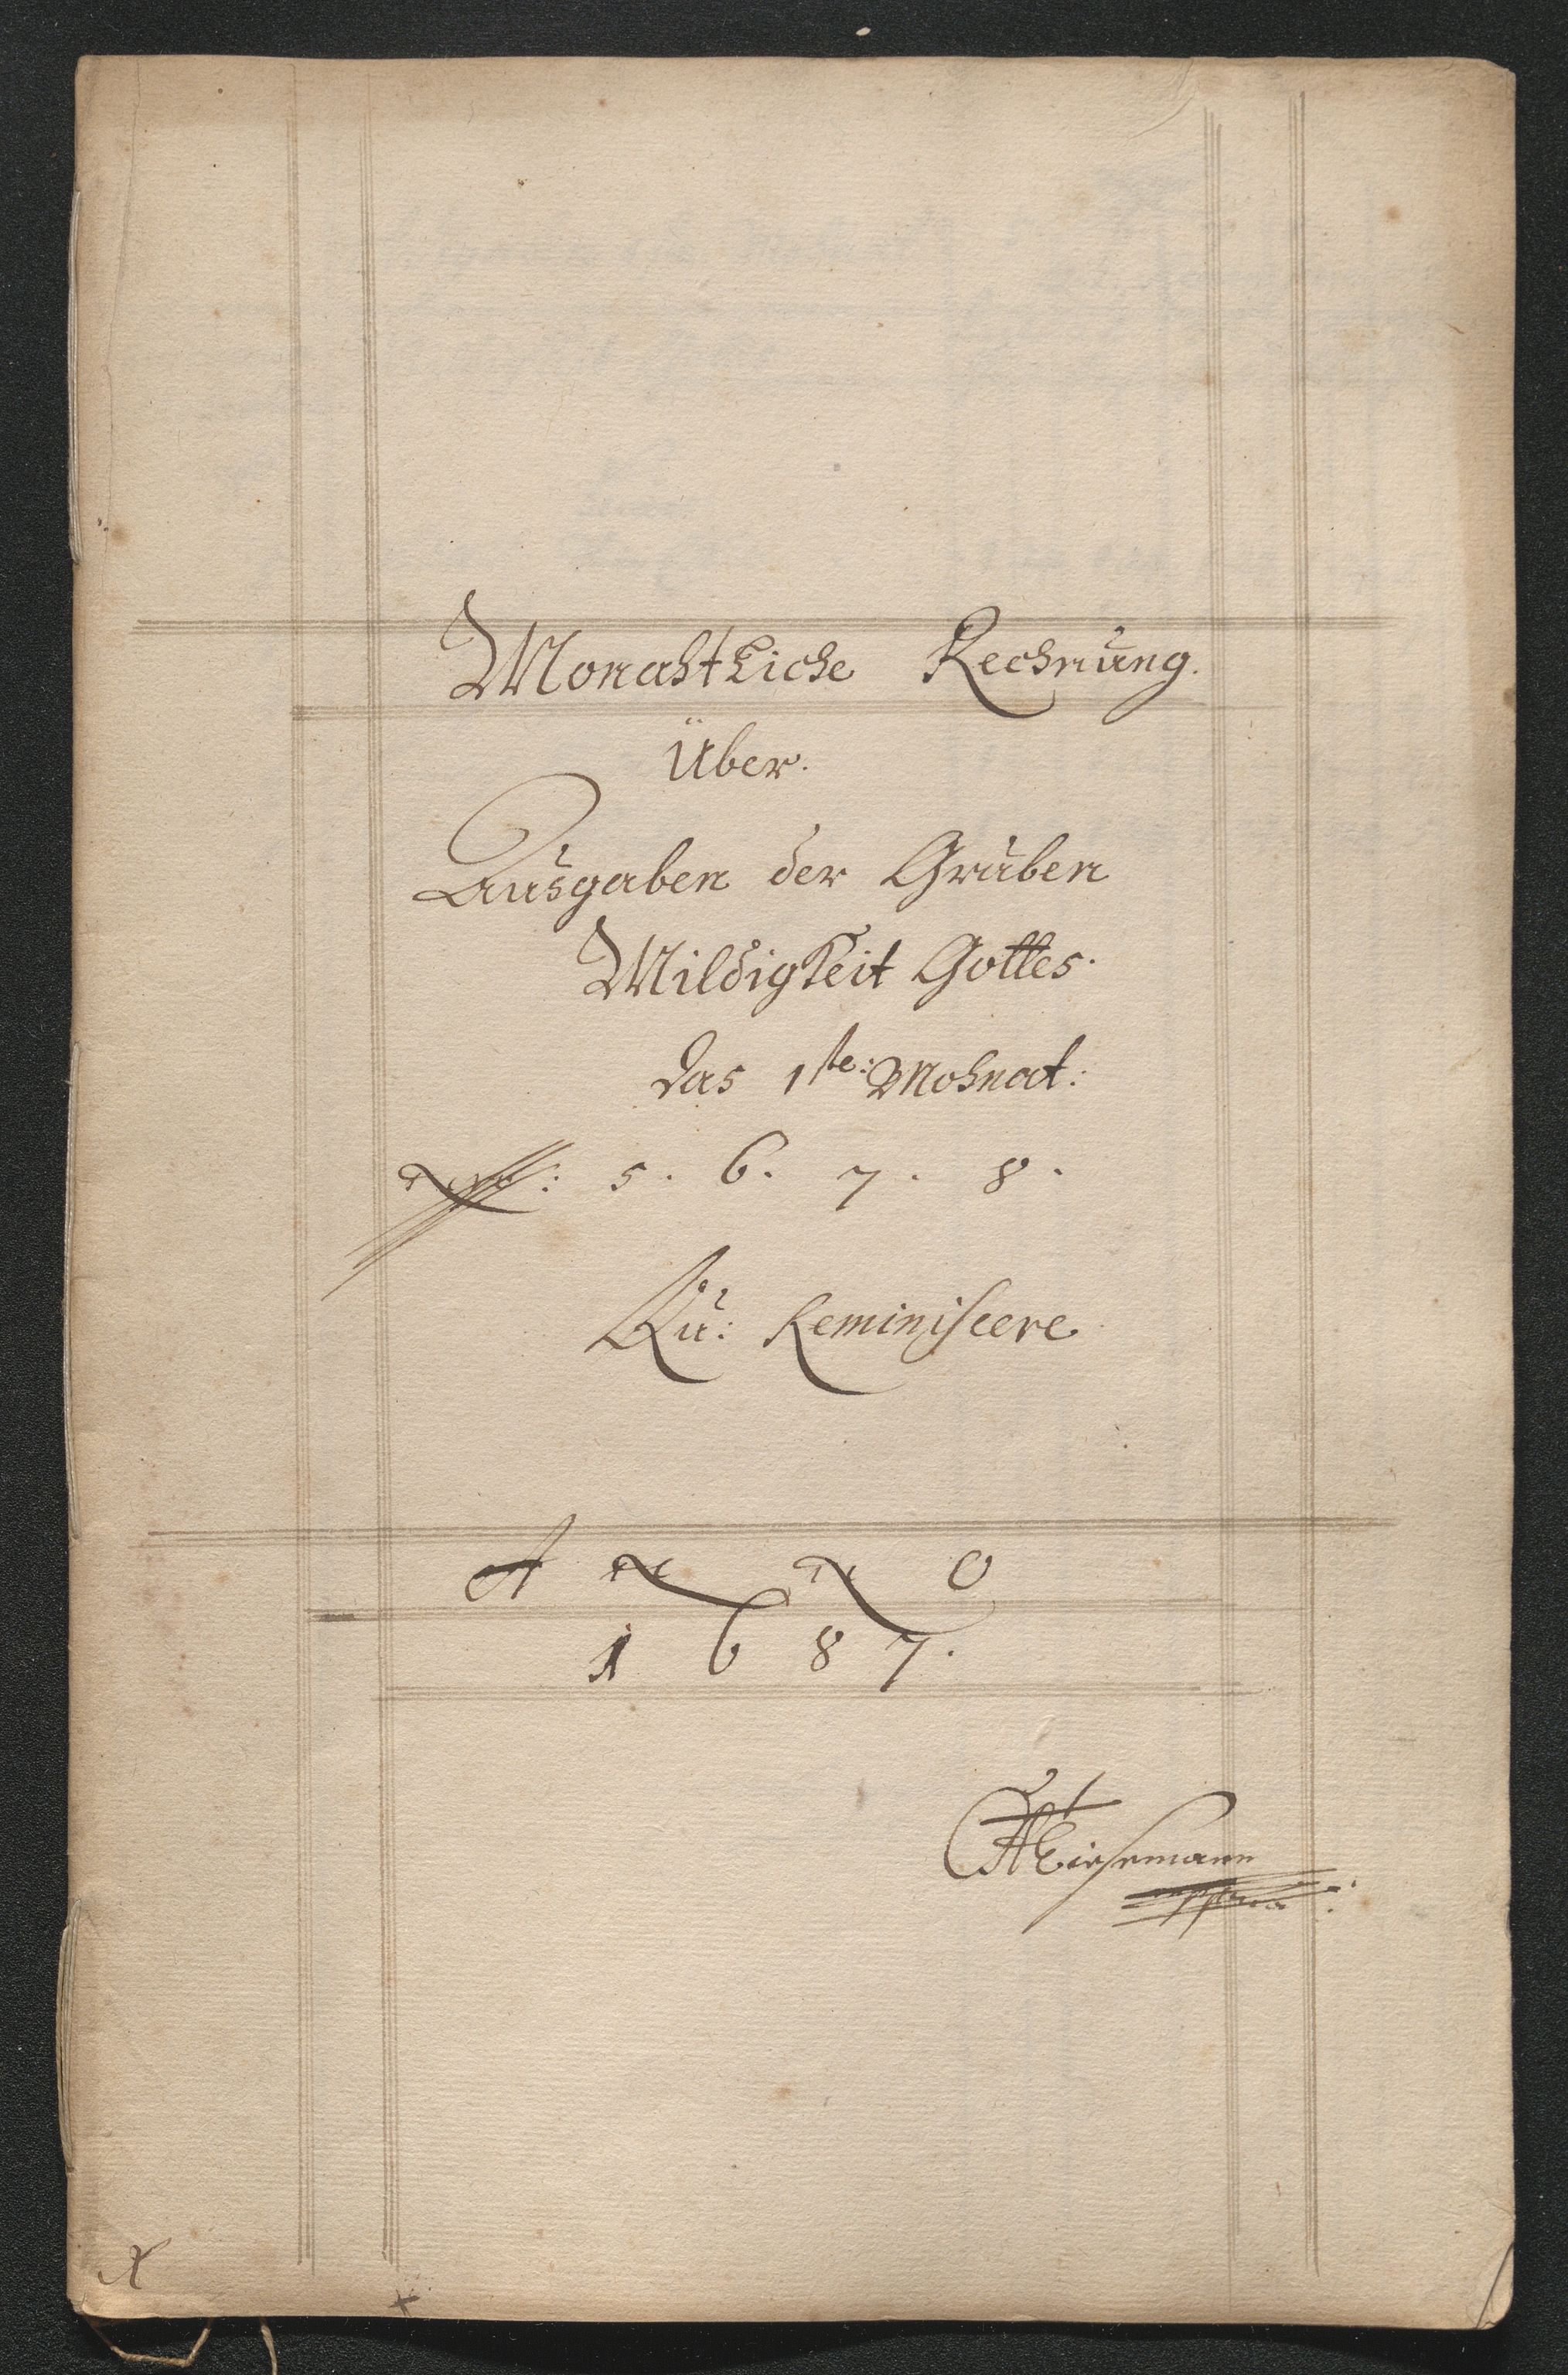 Monahtliche Rechnung.
Über.
Ausgaben der Gruben
Mildigkeit Gottes.
das 1ste: Mohnat:
No: 5. 6. 7. 8.
Qu: Reminiscere
A n n o
1 6 8 7.
mppria:
X